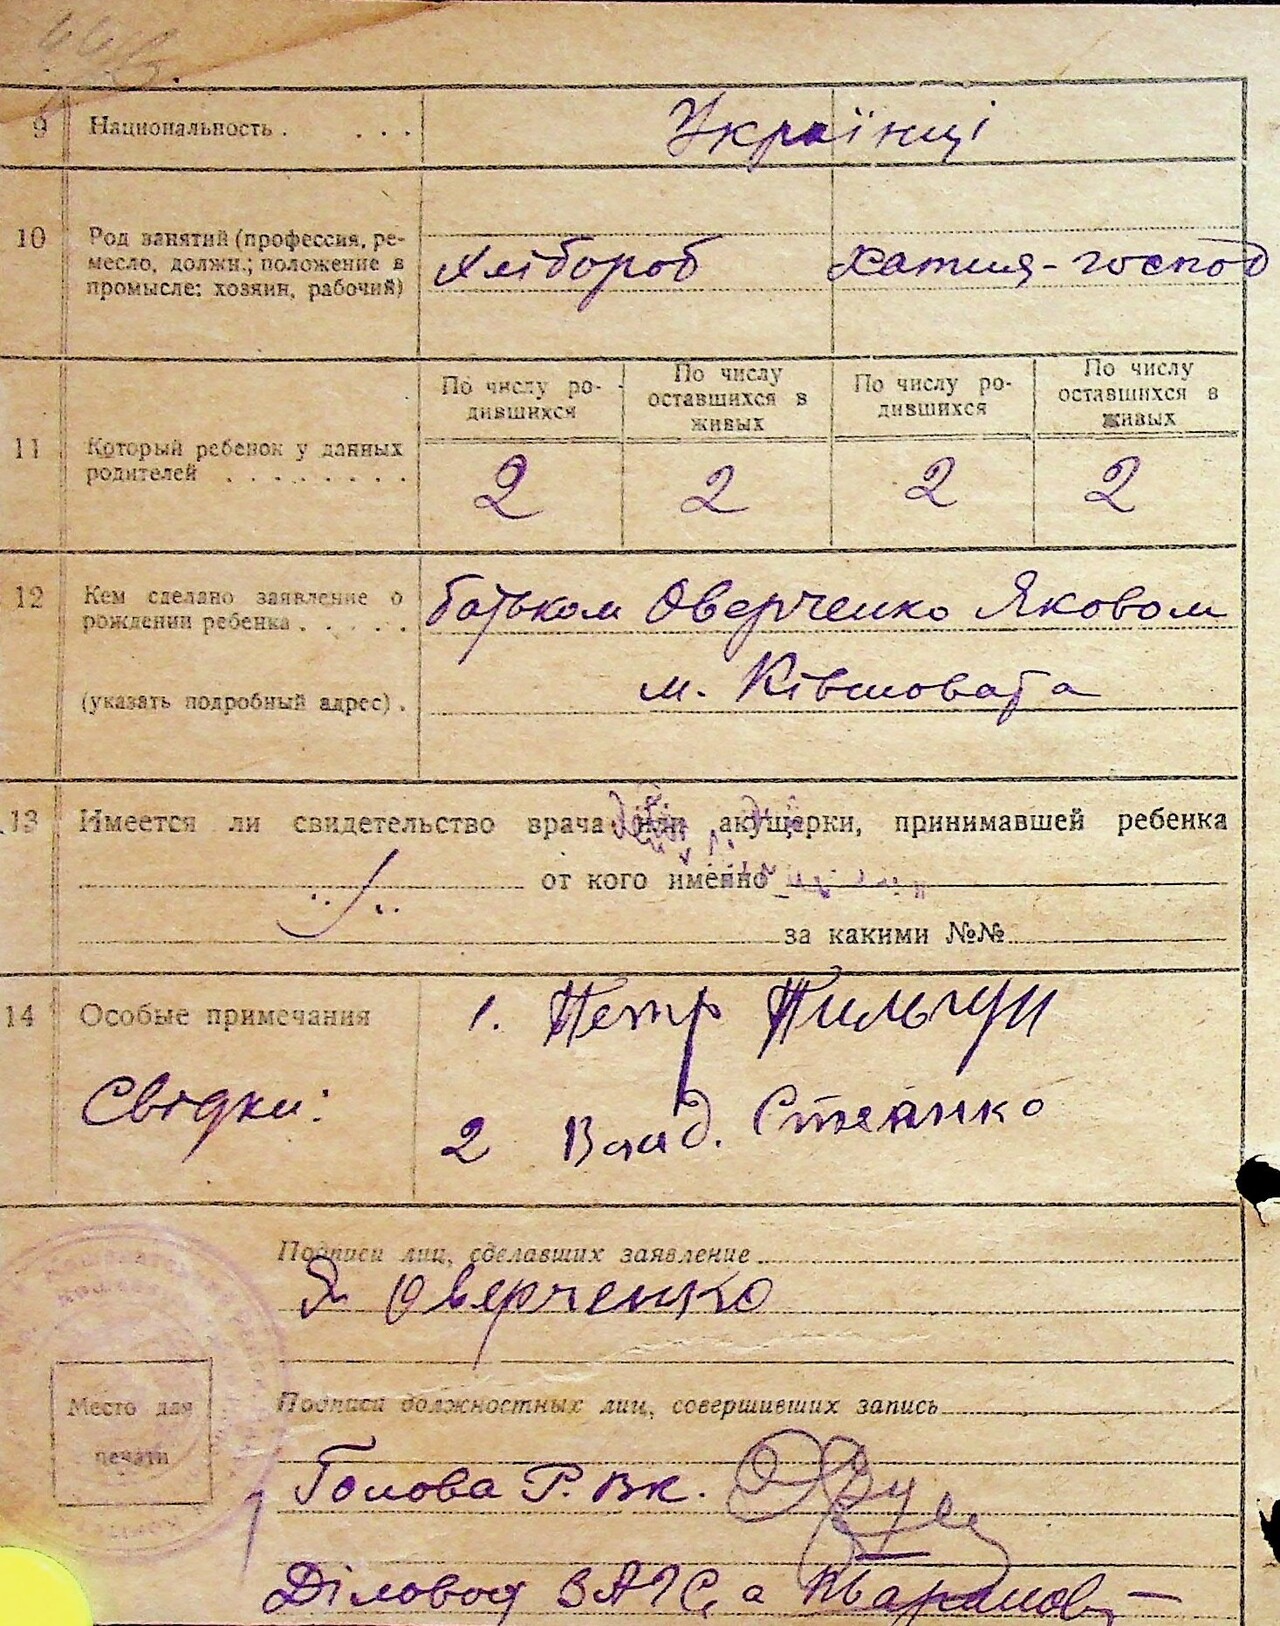 9 Национальность . . . . Українці
10 Род занятий (профессия, ре-
месло, должн.; положение в
промысле: хозяин, рабочий)
Хлібороб хатня-господ
По числу ро-
дившихся
По числу
оставшихся в
живых
По числу ро-
дившихся
По числу
оставшихся в
живых
11 Который ребенок у данных
родителей . . . . . . . .
2 2 2 2
12 Кем сделано заявление о
рождении ребенка . . . . .
батьком Оверченко Яковом
(указать подробный адрес) . м. Ківшовата
13 Имеется ли свидетельство врача или акушерки, принимавшей ребенка
от кого именно
за какими №№
14 Особые примечания 1. Петр
Свідки:
2 Влад.
Подписи лиц, сделавших заявление
Як Оверченко
Место для
печати
Подписи должностных лиц, совершивших запись
Голова Р. вк.
Діловод ЗАГС, а